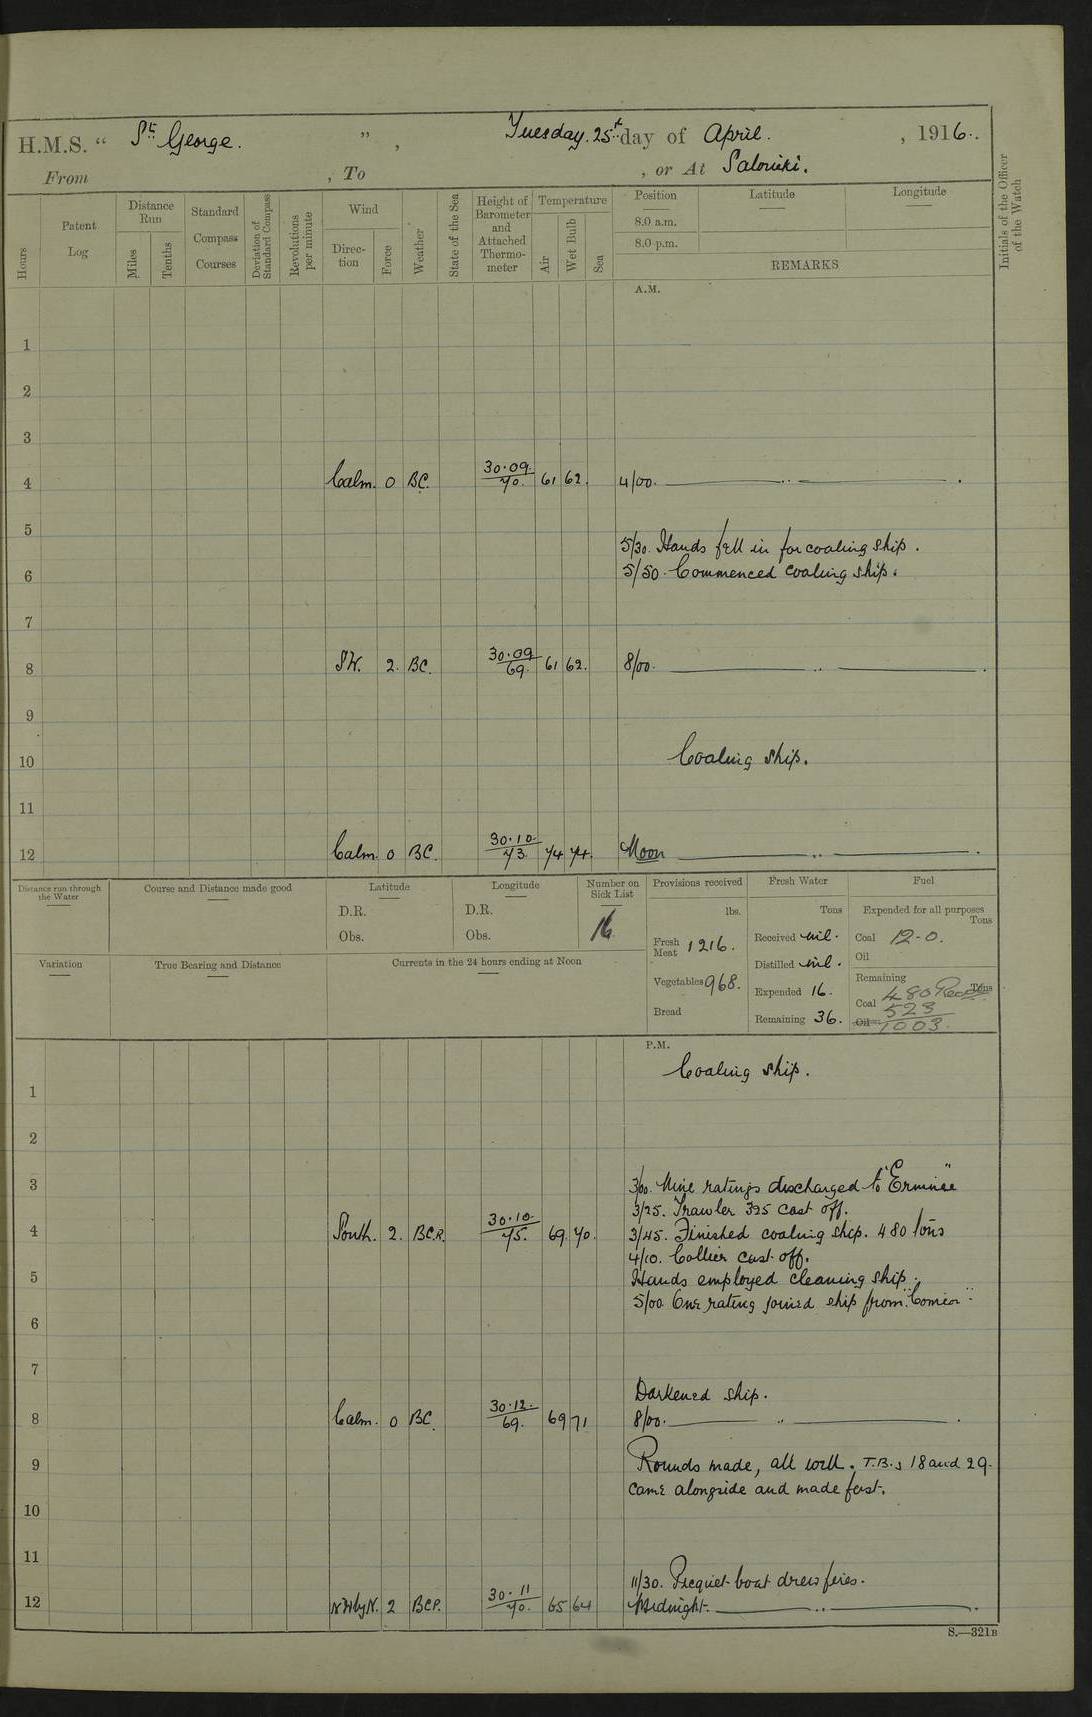 H.M.S. " St George. ", Tuesday. 25th day of April. , 1916.
From , To , or At Salonika.
Hours
Patent Log
Distance Run
Miles
Tenths
Standard Compass Courses
Deviation of Standard Compass
Revolutions per minute
Wind
Direc-tion
Force
Weather
State of the Sea
Height of Barometer and Attached Thermo-meter
Temperature
Air
Wet Bulb
Sea
Position
Latitude
Longitude
8.0 a.m.
8.0 p.m.
REMARKS
Initials of the Officer of the Watch
A.M.
1
2
3
4 Calm. 0 BC. 30.09. 70. 61 62. 4/00. — " — .
5
5/30. Hands fell in for coaling ship.
6 5/50. Commenced coaling ship.
7
8 SW. 2. BC. 30.09 69. 61 62. 8/00. — " — .
9
10 Coaling ship.
11
12 Calm. 0 BC. 30.10. 73. 74 74. Noon — " — .
Distance run through the Water
Course and Distance made good
Latitude
D.R.
Obs.
Longitude
D.R.
Obs.
Number on Sick List
16
Provisions received
lbs.
Fresh Meat 1216.
Vegetables 968.
Bread
Fresh Water
Tons
Received nil.
Distilled nil.
Expended 16.
Remaining 36.
Fuel
Expended for all purposes
Tons
Coal 12-0.
Oil
Remaining
Tons
480 Recd
Coal 523
Oil 1003.
Variation
True Bearing and Distance
Currents in the 24 hours ending at Noon
P.M.
Coaling ship.
1
2
3 3/00. Nine ratings discharged to "Ermine"
3/25. Trawler 325 cast off.
4 South. 2. BC.R. 30.10. 75. 69. 70. 3/45. Finished coaling ship. 480 tons
4/10. Collier cast off.
5 Hands employed cleaning ship.
5/00 One rating joined ship from
6
7
Darkened ship.
8 Calm. 0 BC. 30.12. 69. 69 71 8/00. — " — .
9 Rounds made, all well. T.B.s 18 and 29.
came alongside and made fast.
10
11
11/30. Picquet boat drew fires.
12 NWbyN. 2 BCP. 30.11 70. 65 64 Midnight. — " — .
S.—321B